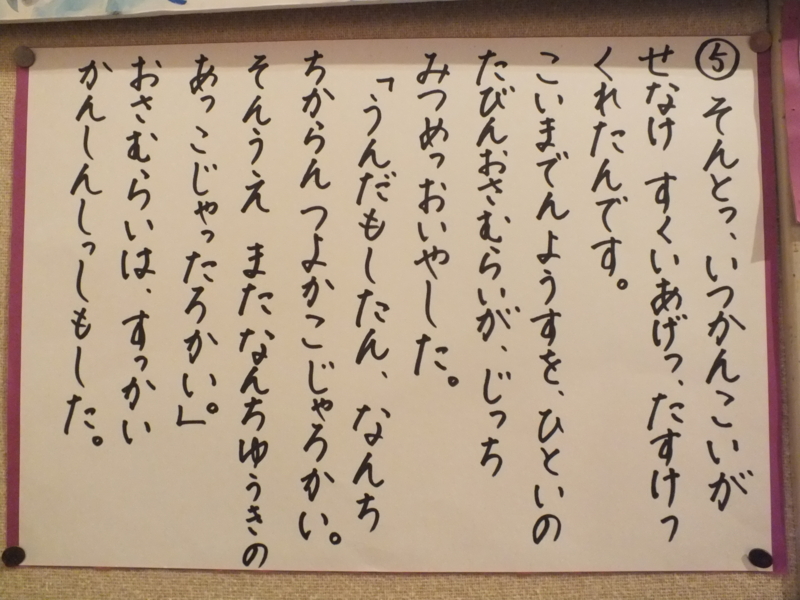 ⑤ そんとっ、いつかんこいが
せなけ すくいあげっ、たすけっ
くれたんです。
こいまでんようすを、ひといの
たびんおさむらいが、じっち
みつめっおいやした。
「うんだもしたん、なんち
ちからんつよかこじゃろかい。
そんうえ またなんちゆうきの
あっこじゃったろかい。」
おさむらいは、すっかい
かんしんしっしもした。